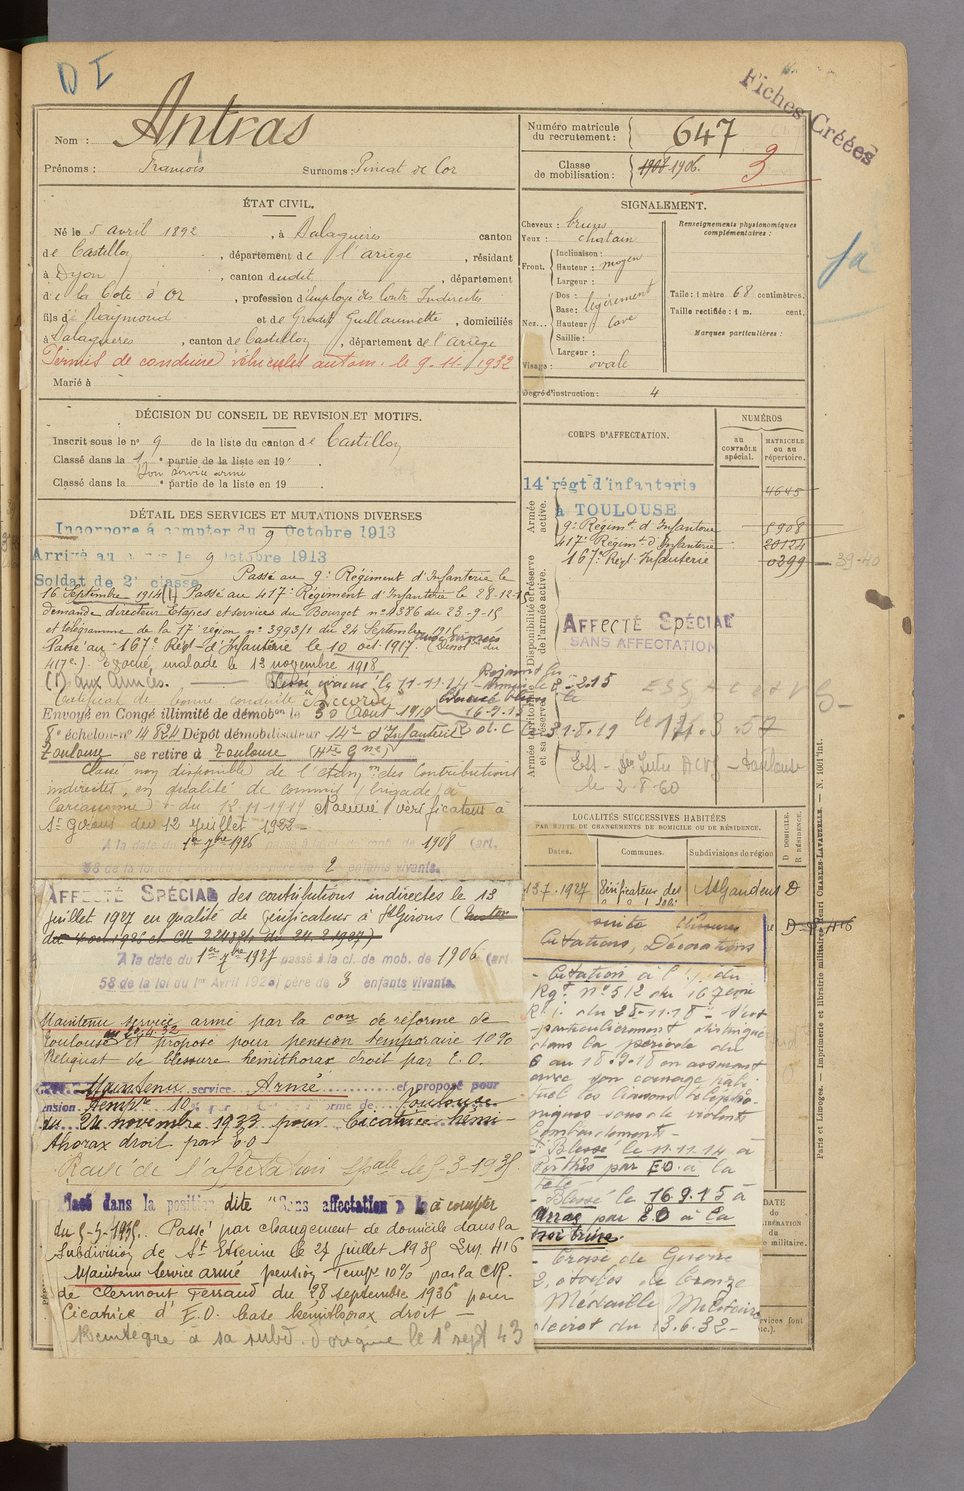 D I
Fiches Créées
Nom : Antras
Prénoms : François Surnoms : Pineat de Cor
Numéro matricule du recrutement : 647
Classe de mobilisation : 1906. 3
ÉTAT CIVIL.
Né le 5 avril 1892, à Balaguères canton
de Castillon, département de l'ariège, résidant
à Dyon, canton dudit, département
de la Cote d'Or, profession d'employé des Contr. Indirectes
fils de Raymond et de Guillaumette, domiciliés
à Balaguères, canton de Castillon, département de l'ariège
Permis de conduire véhicules autom. le 9.11.1932
Marié à
DÉCISION DU CONSEIL DE REVISION ET MOTIFS.
Inscrit sous le n° 9 de la liste du canton de Castillon
Classé dans la 1e partie de la liste en 19
Bon service armé
Classé dans la e partie de la liste en 19 .
DÉTAIL DES SERVICES ET MUTATIONS DIVERSES
Incorporé à compter du 9 Octobre 1913
Arrivé au corps le 9 Octobre 1913
Soldat de 2e classe Passé au 9e Régiment d'Infanterie le
16 Septembre 1914 (1) Passé au 417e Régiment d'Infanterie le 28-12-1
demande directeur Etapes et services du Bourget n° 4386 du 23-9-15
et télégramme de la 17e région n° 3993/1 du 24 Septembre
Passé au 167e Régt d'Infanterie le 10 oct. 1917. (Dépôt du
417e). Evacué, malade le 13 novembre 1918
(1) aux Armées. Blessé évacué le 11-11-14 Rejoint le 8-2-15
Certificat de bonne conduite "Accordé"
16-9-15
Envoyé en Congé illimité de démobon le 30 Août 1919
8e échelon n° 14824 Dépôt démobilisateur 14e d'Infanterie R. d. C. 31.8.19
Toulouse se retire à Toulouse (Hte Gne)
Classé non disponible de l'admon des Contributions
indirectes, en qualité de commis à
Carcassonne du 12-11-1919 Nommé vérificateur à
St Girons du 12 juillet 1922-
A la date du 1er 7bre 1926 passé à la cl. de mob. de 1908 (art.
58 de la loi du père de 2 enfants vivants.
AFFECTÉ SPÉCIAL des contributions indirectes le 13
juillet 1927 en qualité de vérificateur à St Girons
A la date du 1er 7bre 1927 passé à la cl. de mob. de 1906 (art
58 de la loi du 1er Avril 1923) père de 3 enfants vivants.
Maintenu service armé par la Con de réforme de
Toulouse du 22.4.32 et proposé pour pension temporaire 10%
Reliquat de blessure hémithorax droit par E.O.
Maintenu service Armé et proposé pour
pension Tempre 10% par Con de réforme de Toulouse
du 24 novembre 1933 pour Cicatrice hémi-
thorax droit par E.O-
Rayé de l'affectation spale le 5-3-1935
Placé dans la position dite "Sans affectation" à compter
du 5-3-1935. Passé par changement de domicile dans la
Subdivision de St Etienne le 27 juillet 1935 Lm 416
Maintenu Service armé pension Tempe 10% par la CR.
de Clermont Ferrand du 28 septembre 1936 pour
Cicatrice d'E.O. base hémithorax droit -
Réintégré à sa subd. d'origine le 1er sept 43
SIGNALEMENT.
Cheveux : bruns
Yeux : chatain
Front. Inclinaison :
Hauteur : moyen
Largeur :
Nez... Dos : légèrement
Base : cave
Hauteur :
Saillie :
Largeur :
Visage : ovale
Renseignements physionomiques complémentaires :
Taille : 1 mètre 68 centimètres.
Taille rectifiée : 1 m. cent.
Marques particulières :
Degré d'instruction : 4
CORPS D'AFFECTATION.
NUMÉROS
AU CONTRÔLE spécial.
MATRICULE OU AU répertoire.
Armée active.
14e régt d'infanterie 4645
à TOULOUSE
9e Régimt d'Infanterie 5908
417e Régimt d'Infanterie 20124
167e Régt Infanterie 0399 39-40
Disponibilité et réserve de l'armée active.
AFFECTÉ SPÉCIAL
SANS AFFECTATION
Armée territoriale et sa réserve
le 14.3.57
le 2-8-60
LOCALITÉS SUCCESSIVES HABITÉES
PAR SUITE DE CHANGEMENTS DE DOMICILE OU DE RÉSIDENCE.
Dates. Communes. Subdivisions de région D DOMICILE. R RÉSIDENCE.
13.7.1927 Vérificateur des St Gaudens D
suite blessures
Citations, Décorations
- Citation à l'O. du
Rgt n° 512 du 167eme
R.I. du 28-11-18 : S'est
particulièrement distingué
dans la période du
6 au 18-9-18 en assurant
avec son courage habi-
tuel les liaisons télépho-
niques sous de violents
bombardements -
- Blessé le 11.11.14 à
par E.O. à la
tête
- Blessé le 16.9.15 à
Arras par E.O à la
poitrine.
- Croix de Guerre
2 étoiles de bronze
Médaille Militaire
Décret du 13.6.32-
Paris et Limoges. — Imprimerie et librairie militaires Henri CHARLES-LAVAUZELLE. — N. 1001 int.